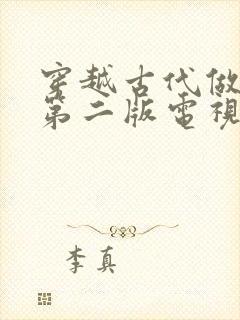 穿越古代做
第二版電視
李真